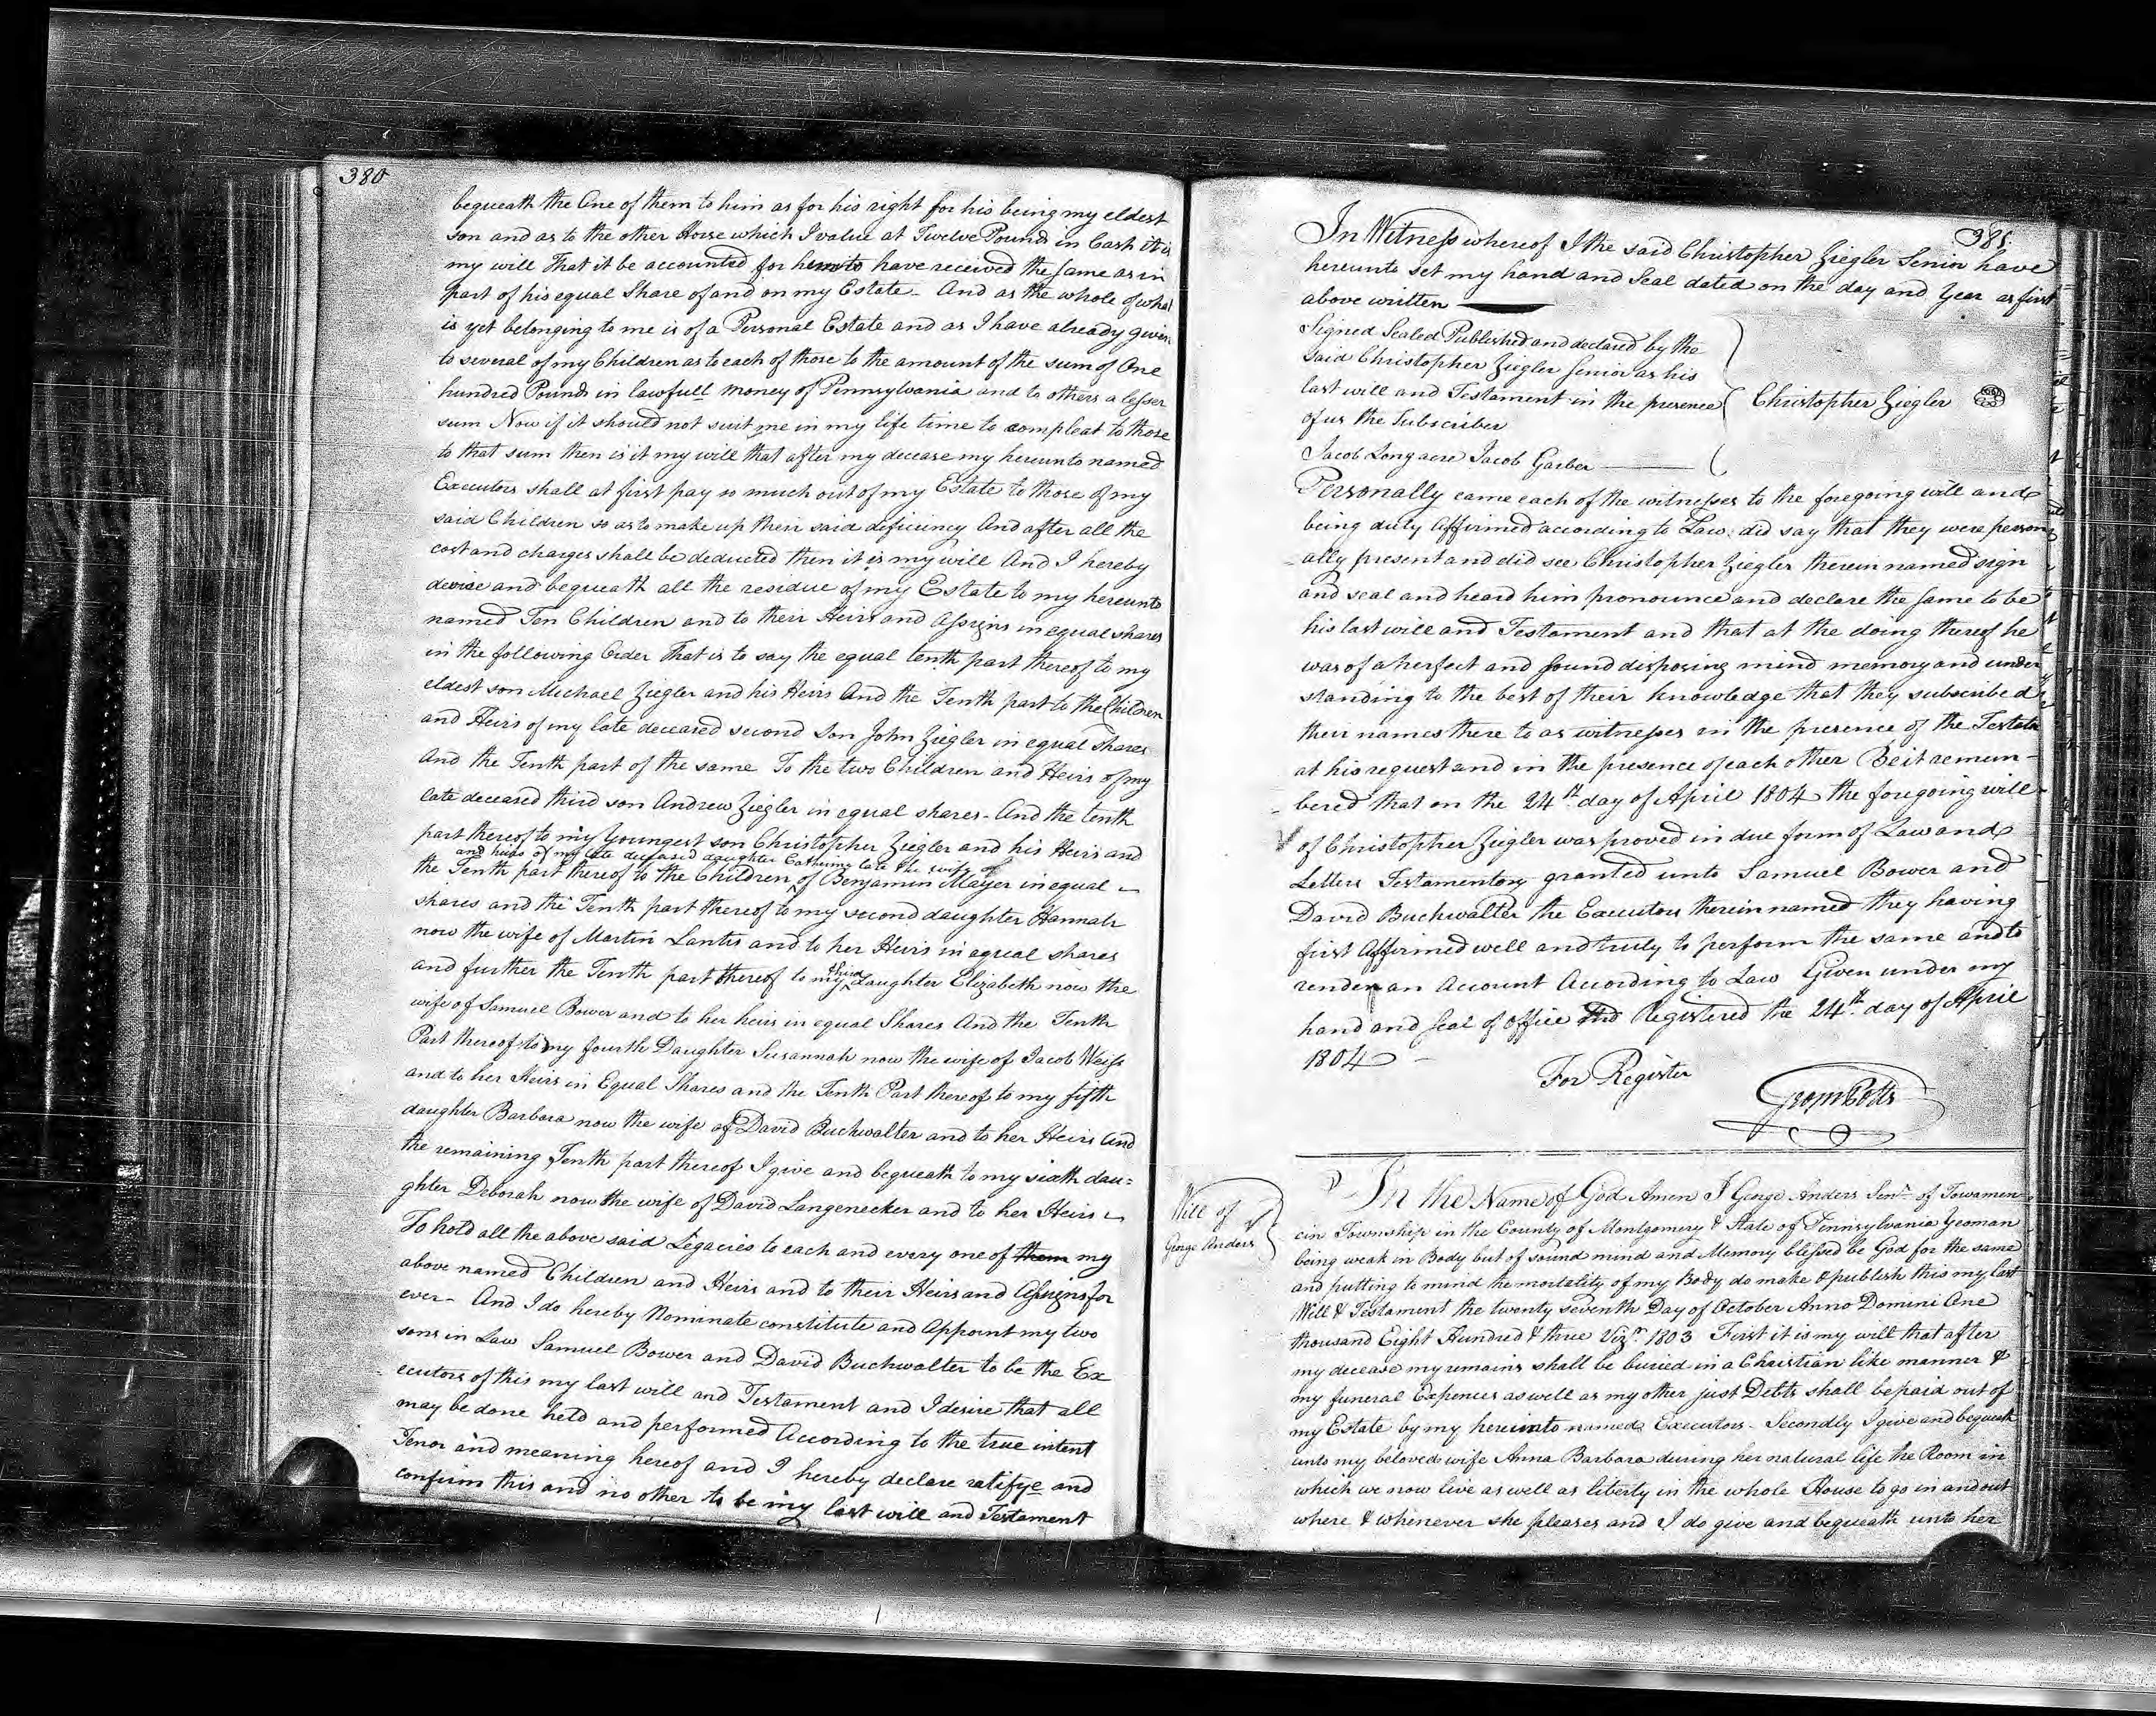 380
bequeath the One of them to him as for his right for his being my eldest
son and as to the other Horse which I value at Twelve Pounds in Cash it is
my will That it be accounted for him to have received the same as in
part of his equal Share of and on my Estate - And as the whole of what
is yet belonging to me is of a Personal Estate and as I have already given
to several of my Children as to each of those to the amount of the sum of One
hundred Pounds in lawfull money of Pennsylvania and to others a lesser
sum Now if it should not suit me in my life time to compleat to those
to that sum then is it my will that after my decease my hereunto named
Executors shall at first pay so much out of my Estate to those of my
said Children so as to make up their said deficiency And after all the
cost and charges shall be deducted then it is my will And I hereby
devise and bequeath all the residue of my Estate to my hereunto
named Ten Children and to their Heirs and Assigns in equal shares
in the following Order That is to say the equal tenth part thereof to my
eldest son Michael Ziegler and his Heirs And the Tenth part to the Children
and Heirs of my late deceased second Son John Ziegler in equal shares
And the Tenth part of the same To the two Children and Heirs of my
late deceased third son Andrew Ziegler in equal shares - And the tenth
part thereof to my Youngest son Christopher Ziegler and his Heirs and
and heirs of my late deceased daughter Catherine late the wife of
the Tenth part thereof to the Children of Benjamin Mayer in equal
shares and the Tenth part thereof to my second daughter Hannah
now the wife of Martin Lantis and to her Heirs in equal shares
and further the Tenth part thereof to my third daughter Elizabeth now the
wife of Samuel Bower and to her heirs in equal Shares And the Tenth
Part thereof to my fourth Daughter Susannah now the wife of Jacob Weiss
and to her Heirs in Equal Shares and the Tenth Part thereof to my fifth
daughter Barbara now the wife of David Buckwalter and to her Heirs And
the remaining Tenth part thereof I give and bequeath to my sixth dau=
ghter Deborah now the wife of David Langenecker and to her Heirs
To hold all the above said Legacies to each and every one of them my
above named Children and Heirs and to their Heirs and Assigns for
ever - And I do hereby Nominate constitute and Appoint my two
sons in Law Samuel Bower and David Buchwalter to be the Ex
ecutors of this my last will and Testament and I desire that all
may be done held and performed According to the true intent
Tenor and meaning hereof and I hereby declare ratifye and
confirm this and no other to be my last will and Testament
381
In Witness whereof I the said Christopher Ziegler Senior have
hereunto set my hand and Seal dated on the day and Year as first
above written
Signed Sealed Published and declared by the
said Christopher Ziegler Senior as his
last will and Testament in the presence Christopher Ziegler
of us the Subscriber
Jacob Longacre Jacob Garber
Personally came each of the witnesses to the foregoing will and
being duly Affirmed according to Law did say that they were person
ally present and did see Christopher Ziegler therein named sign
and seal and heard him pronounce and declare the same to be
his last will and Testament and that at the doing thereof he
was of a perfect and sound disposing mind memory and under
standing to the best of their knowledge that they subscribed
their names there to as witnesses in the presence of the Testator
at his request and in the presence of each other Be it remem-
bered that on the 24th day of April 1804 the foregoing will
of Christopher Ziegler was proved in due form of Law and
Letters Testamentory granted unto Samuel Bower and
David Buchwalter the Executors therein named they having
first Affirmed well and truly to perform the same and to
render an Account According to Law Given under my
hand and seal of office and Registered the 24th day of April
1804
For Register
Will of
George Anders
In the Name of God Amen I George Anders Senr. of Towamen
cin Township in the County of Montgomery & State of Pennsylvania Yeoman
being weak in Body but of sound mind and Memory blessed be God for the same
and putting to mind the mortality of my Body do make & publish this my last
Will & Testament the twenty seventh Day of October Anno Domini One
thousand Eight Hundred & three Vizt. 1803 First it is my will that after
my decease my remains shall be buried in a Christian like manner &
my funeral Expences as well as my other just Debts shall be paid out of
my Estate by my hereunto named Executors - Secondly I give and bequeath
unto my beloved wife Anna Barbara during her natural life the Room in
which we now live as well as liberty in the whole House to go in and out
where & whenever she pleases and I do give and bequeath unto her